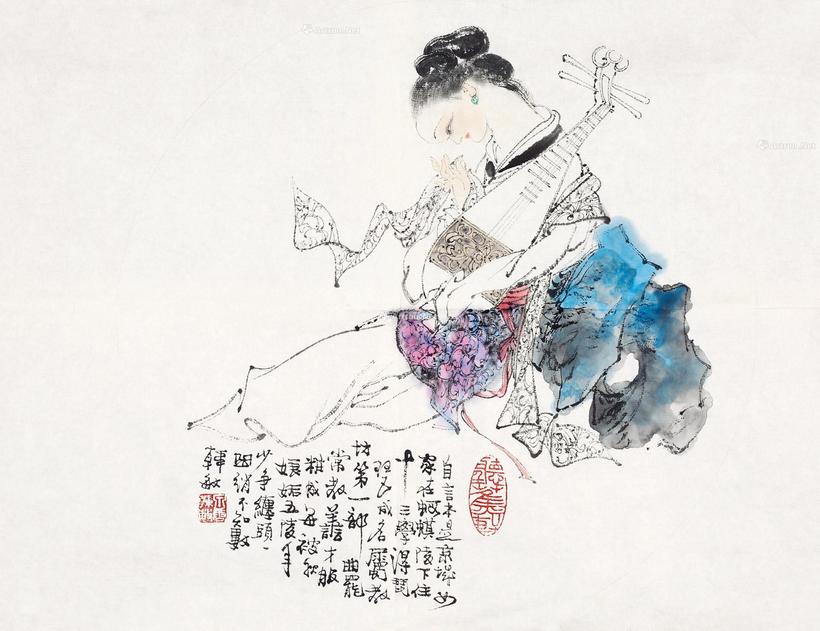 自言本是京城女
家在蝦蟆陵下住
十三學得琵
琶成名屬教
坊第一部曲罷
常教善才服
粧成每被秋
娘妒五陵年
少爭纏頭一
曲綃不知數
韓敏